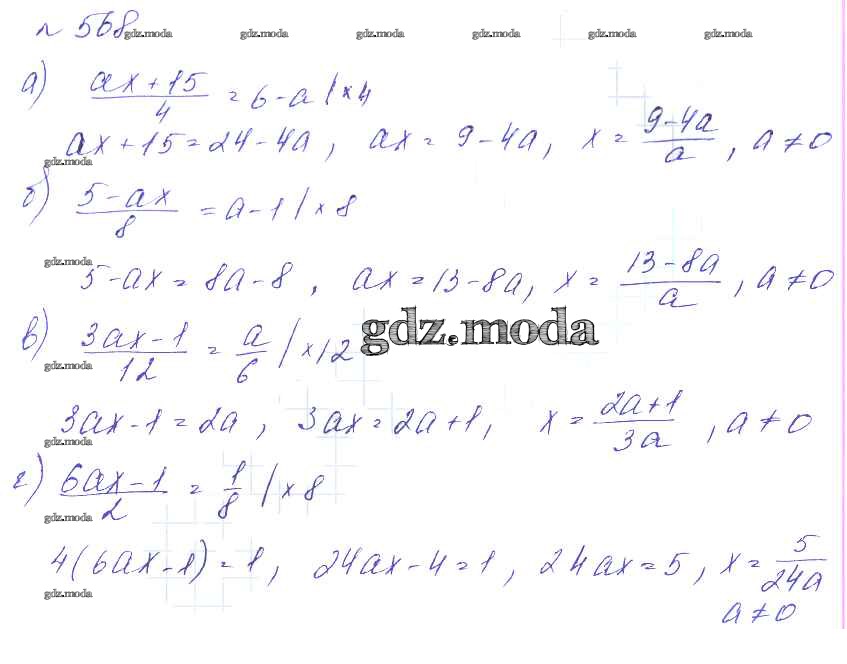 № 568 gdz.moda gdz.moda gdz.moda gdz.moda gdz.moda gdz.moda
а) (ax + 15)/4 = 6 - a | × 4
ax + 15 = 24 - 4a, ax = 9 - 4a, x = (9 - 4a)/a, a ≠ 0
gdz.moda
б) (5 - ax)/8 = a - 1 | × 8
gdz.moda
5 - ax = 8a - 8, ax = 13 - 8a, x = (13 - 8a)/a, a ≠ 0
gdz.moda
в) (3ax - 1)/12 = a/6 | × 12
gdz.moda
3ax - 1 = 2a, 3ax = 2a + 1, x = (2a + 1)/3a, a ≠ 0
gdz.moda
г) (6ax - 1)/2 = 1/8 | × 8
gdz.moda
4(6ax - 1) = 1, 24ax - 4 = 1, 24ax = 5, x = 5/24a
gdz.moda
a ≠ 0